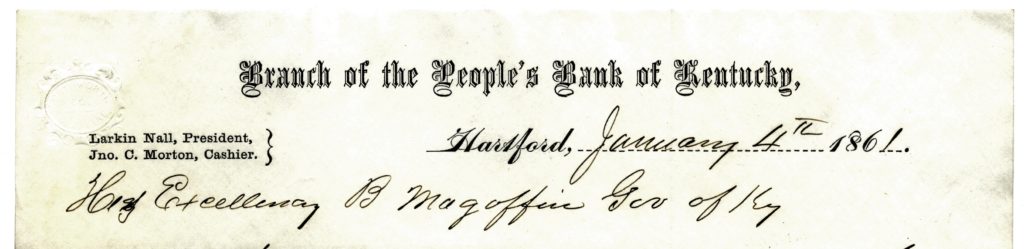 Branch of the People's Bank of Kentucky,
Larkin Nall, President,
Jno. C. Morton, Cashier.
Hartford, January 4th 1861.
His Excellency B Magoffin Gov of Ky